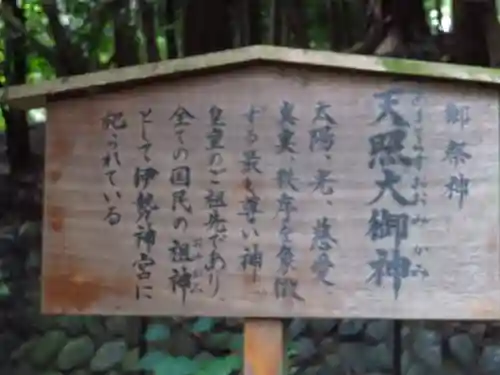 御祭神
天照大御神
あまてらすおおみかみ
太陽、光、慈愛、
真実、秩序を象徴
する最も尊い神
皇室のご祖先であり、
全ての国民の祖神
おやがみ
として伊勢神宮に
祀られている